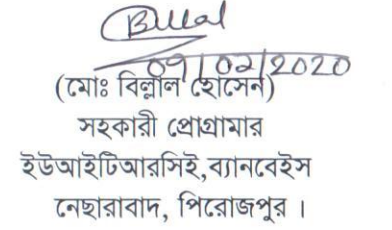 Billal
09/02/2020
(মোঃ বিল্লাল হোসেন)
সহকারী প্রোগ্রামার
ইউআইটিআরসিই,ব্যানবেইস
নেছারাবাদ, পিরোজপুর ।